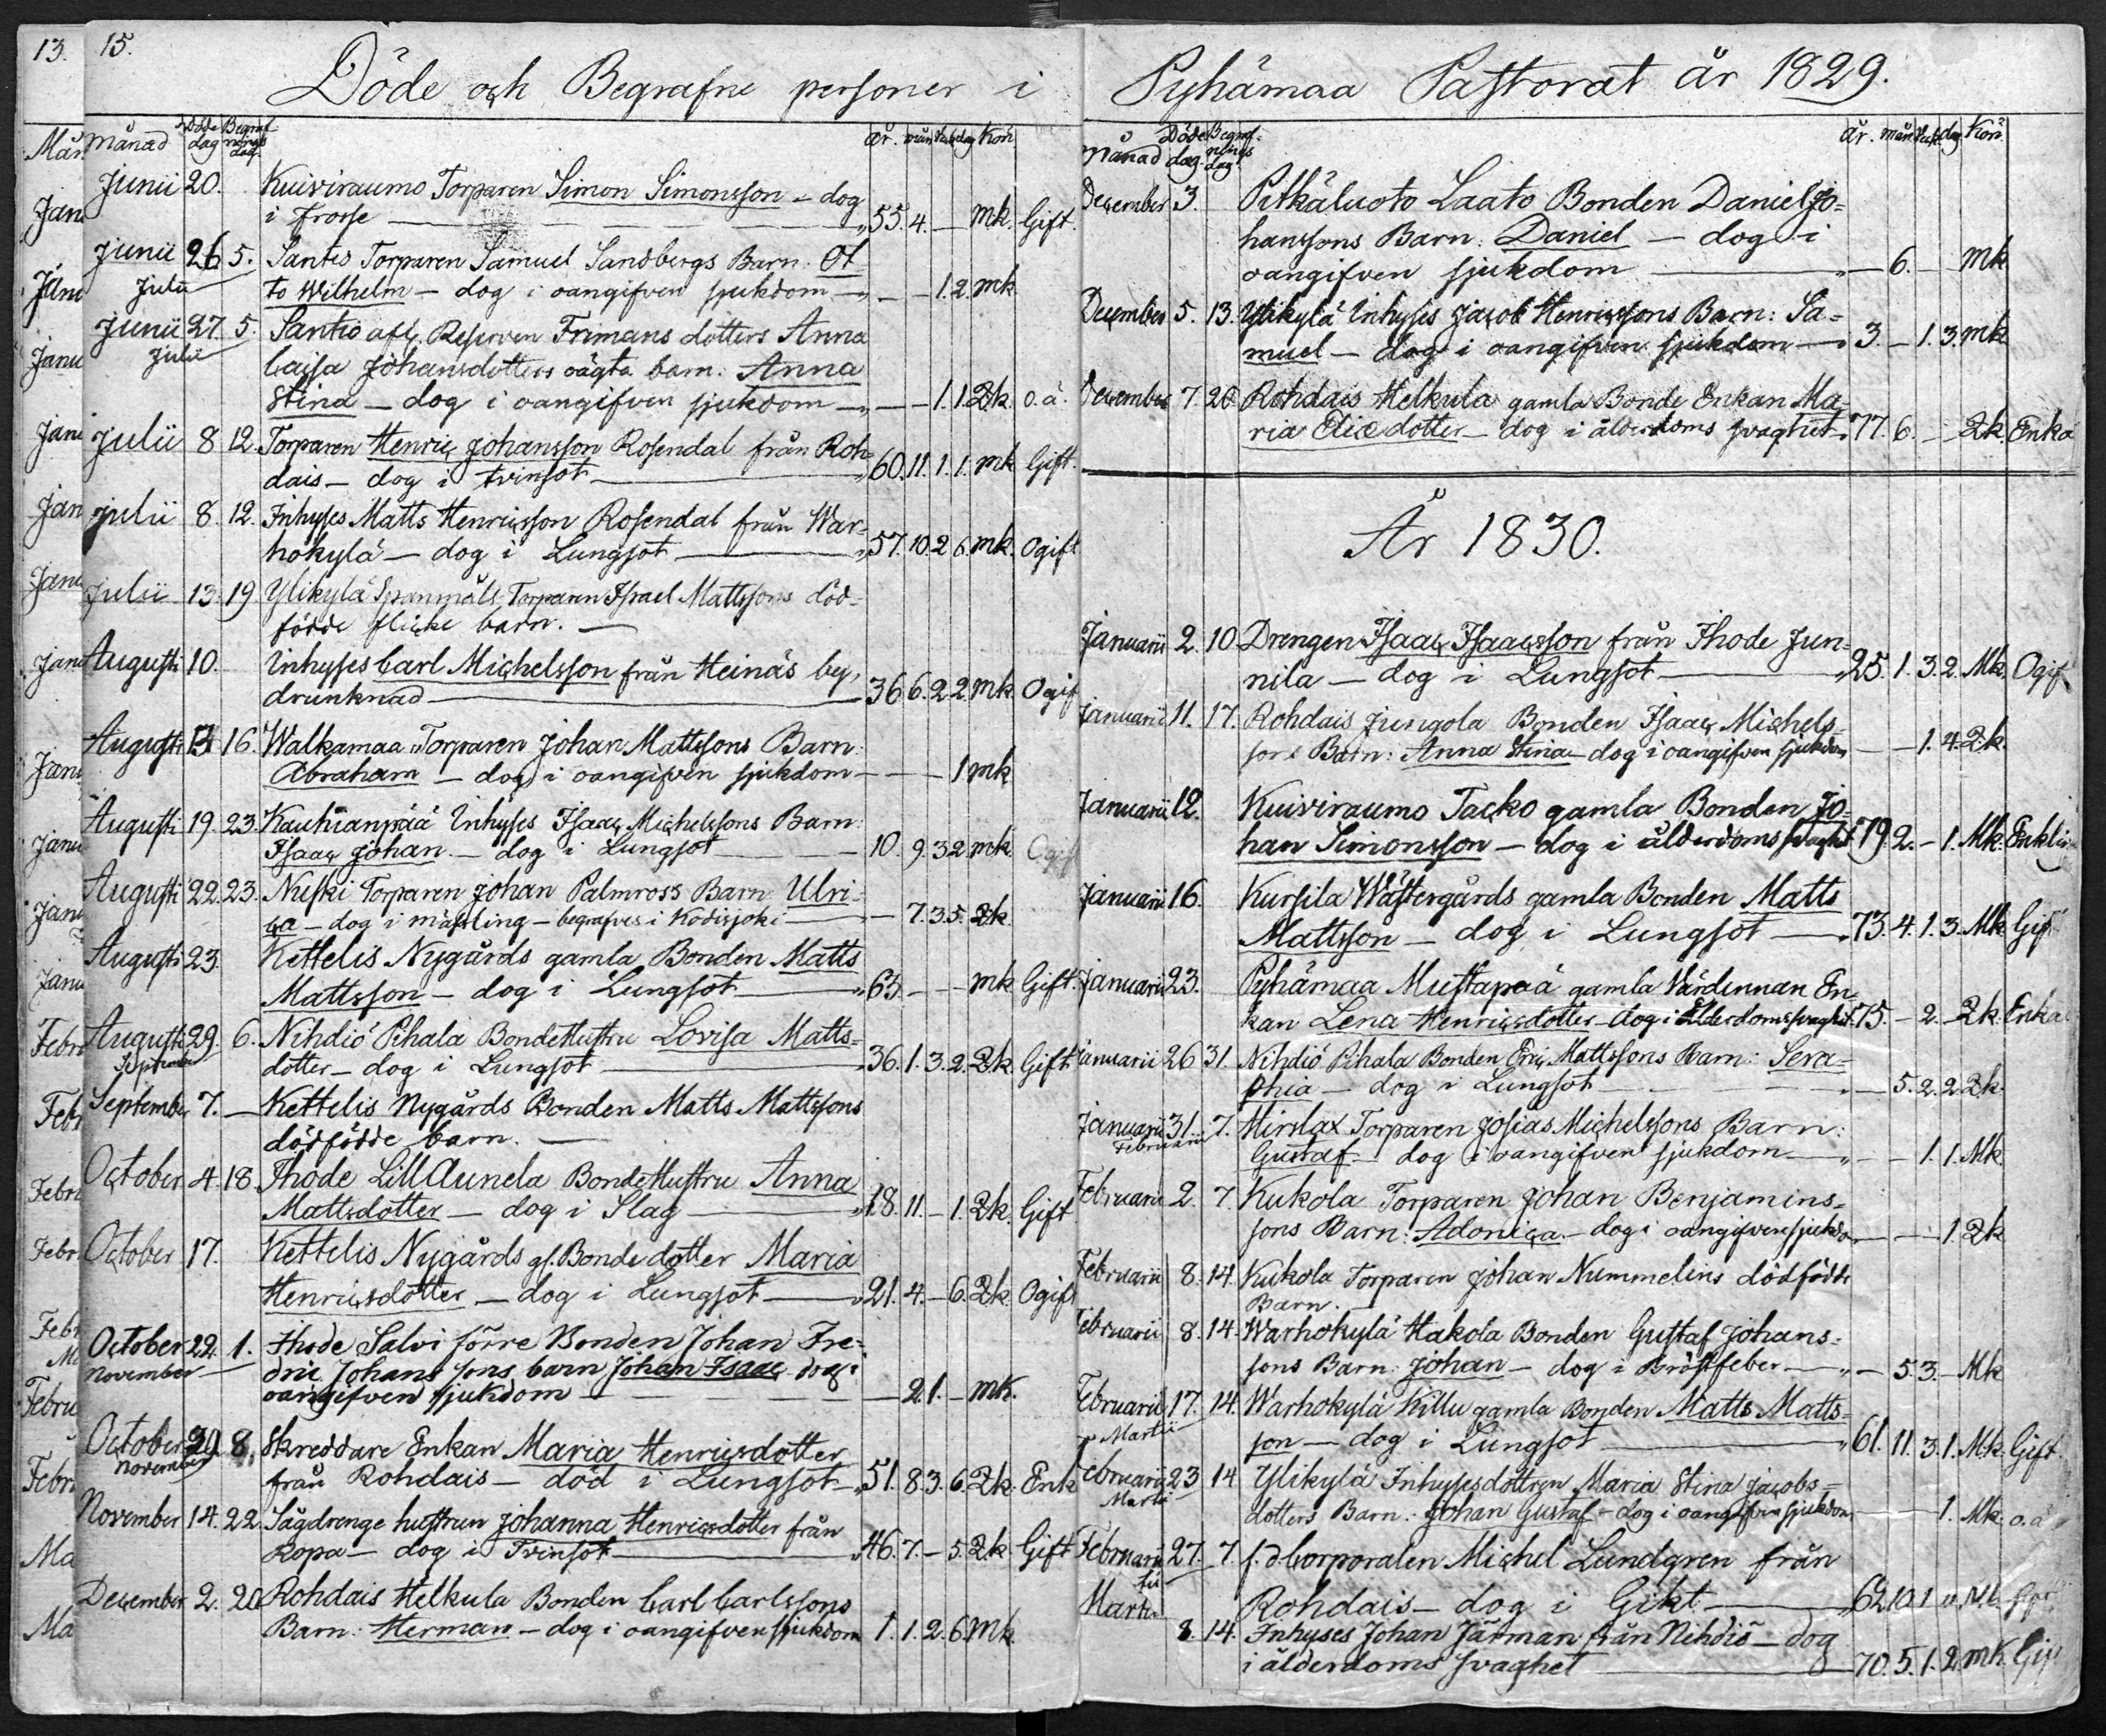 13. 15.
Döde och Begrafne personer i
Månad Döde dag Begrafnings dag år. mån. Veck. dag. Kön
Junii 20. Kuiviraumo Torparen Simon Simonsson – dog
i frosse — 55. 4. — mk. Gift.
Junii 26 5. Santis Torparen Samuel Sandbergs Barn. Ot
Julii to Wilhelm – dog i oangifven sjukdom — — 1. 2. mk
Junii 27. 5. Santio afl. Reserven Frimans dotters Anna
Julii Cajsa Johansdotters oägta barn. Anna
Stina – dog i oangifven sjukdom — — 1. 1. Qk. o.ä.
Julii 8 12. Torparen Henric Johansson Rosendal från Roh-
dais – dog i tvinsot — 60. 11. 1. 1. mk Gift.
Julii 8. 12. Inhyses Matts Henricsson Rosendal från War-
hokylä – dog i Lungsot — 57. 10. 2 6. mk. Ogift
Julii 13. 19 Ylikylä Torparen Israel Mattssons död-
födde flicke barn. —
Augusti 10. Inhyses Carl Michelsson från Heinäs by,
drunknad — 36 6. 2 2. mk Ogif
Augusti 13 16. Walkamaa Torparen Johan Mattssons Barn:
Abraham – dog i oangifven sjukdom — — — 1 mk
Augusti 19. 23. Kauhianpää Inhyses Isaac Michelssons Barn:
Isaac Johan. – dog i Lungsot — 10. 9. 3 2. mk. Ogif
Augusti 22. 23. Neski Torparen Johan Palmross Barn Ulri-
ca – dog i mässling – begrafves i Kodisjoki — 7. 3. 5. Qk.
Augusti 23. Kettelis Nygårds gamla Bonden Matts
Mattsson – dog i Lungsot — 63. — — mk Gift.
Augusti 29. 6. Nihdiö Pihala BondeHustru Lovisa Matts-
September dotter – dog i Lungsot — 36. 1. 3. 2. Qk. Gift
September 7. — Kettelis Nygårds Bonden Matts Mattssons
dödfödde barn. —
October 4. 18. Ihode LillAunela BondeHustru Anna
Mattsdotter – dog i Slag — 18. 11. — 1. Qk. Gift
October 17. Kettelis Nygårds gl. Bonde dotter Maria
Henricsdotter – dog i Lungsot — 21. 4. — 6. Qk. Ogift
October 22. 1. Ihode Salvi förre Bonden Johan Fre-
November dric Johans sons barn Johan Isaac dog i
oangifven sjukdom — 2. 1. — mk.
October 30. 8. Skreddare Enkan Maria Henricsdotter
November från Rohdais – död i Lungsot — 51. 8. 3. 6. Qk. Enk
November 14. 22 Sågdrenge hustrun Johanna Henricsdotter från
Ropa – dog i Tvinsot — 46. 7. — 5. Qk Gift
December 2. 20 Rohdais Helkula Bonden Carl Carlssons
Barn: Herman – dog i oangifven sjukdom 1. 1. 2. 6. Mk.
Pyhämaa Pastorat år 1829.
Månad Döde dag. Begrafnings dag. År. mån Veck. dag. Kön
December 3. Pitkäluoto Laato Bonden Daniel Jo-
hanssons Barn: Daniel – dog i
oangifven sjukdom — — 6. — mk
December 5. 13. Ylikylä Inhyses Jacob Henricssons Barn: Sa-
muel – dog i oangifven sjukdom — 3. — 1. 3. mk
December 7. 20 Rohdais Helkula gamla Bonde Enkan Ma-
ria Eliædotter – dog i ålderdoms svaghet. 77. 6. — Qk Enka
År 1830.
Januarii 2. 10. Drengen Isaac Isaacsson från Ihode Jun-
nila – dog i Lungsot — 25. 1. 3. 2. Mk. Ogif
Januarii 11. 17. Rohdais Jungola Bonden Isaac Michels-
sons Barn: Anna Stina – dog i oangifven sjukdom — — 1. 4. Qk.
Januarii 12. Kuiviraumo Tacko gamla Bonden Jo-
han Simonsson – dog i ålderdoms svaghet 79. 2. — 1. Mk. Enkli
Januarii 16. Kursila Wästergårds gamla Bonden Matts
Mattsson – dog i Lungsot — 73. 4. 1. 3. Mk Gif
Januarii 23. Pyhämaa Mustapää gamla Värdinnan En-
kan Lena Henricsdotter – dog i Ålderdoms svaghet. 75. — 2. — Qk. Enka
Januarii 26 31. Nihdiö Pihala Bonden Eric Mattssons Barn: Sera-
phia – dog i Lungsot — — 5. 2. 2 Qk.
Januarii 31. 7. Hirslax Torparen Josias Michelssons Barn:
Februarii Gustaf – dog i oangifven sjukdom — — 1. 1. Mk
Februarii 2. 7. Kukola Torparen Johan Benjamins-
sons Barn: Adonica – dog i oangifven sjukdo — — 1. Qk
Februarii 8. 14. Kukola Torparen Johan Nummelins dödfödde
Barn.
Februarii 8. 14. Warhokylä Hakola Bonden Gustaf Johans-
sons Barn: Johan – dog i Bröstfeber — — 5 3. — Mk
Februarii 17. 14. Warhokylä Killu gamla Bonden Matts Matts-
Martii son – dog i Lungsot — 61. 11. 3. 1. Mk. Gift.
Februarii 23 14 Ylikylä Inhysesdottren Maria Stina Jacobs-
Martii dotters Barn: Johan Gustaf – dog i oangifven sjukdom — — 1. Mk. o.ä
Februarii 27. 7 f.d. Corporalen Michel Lundgren från
Martii Rohdais – dog i Gikt — 62. 10. 1
8. 14. Inhyses Johan Järman från Nihdiö – dog
i ålderdoms svaghet — 70. 5. 1. 2 mk. Gif